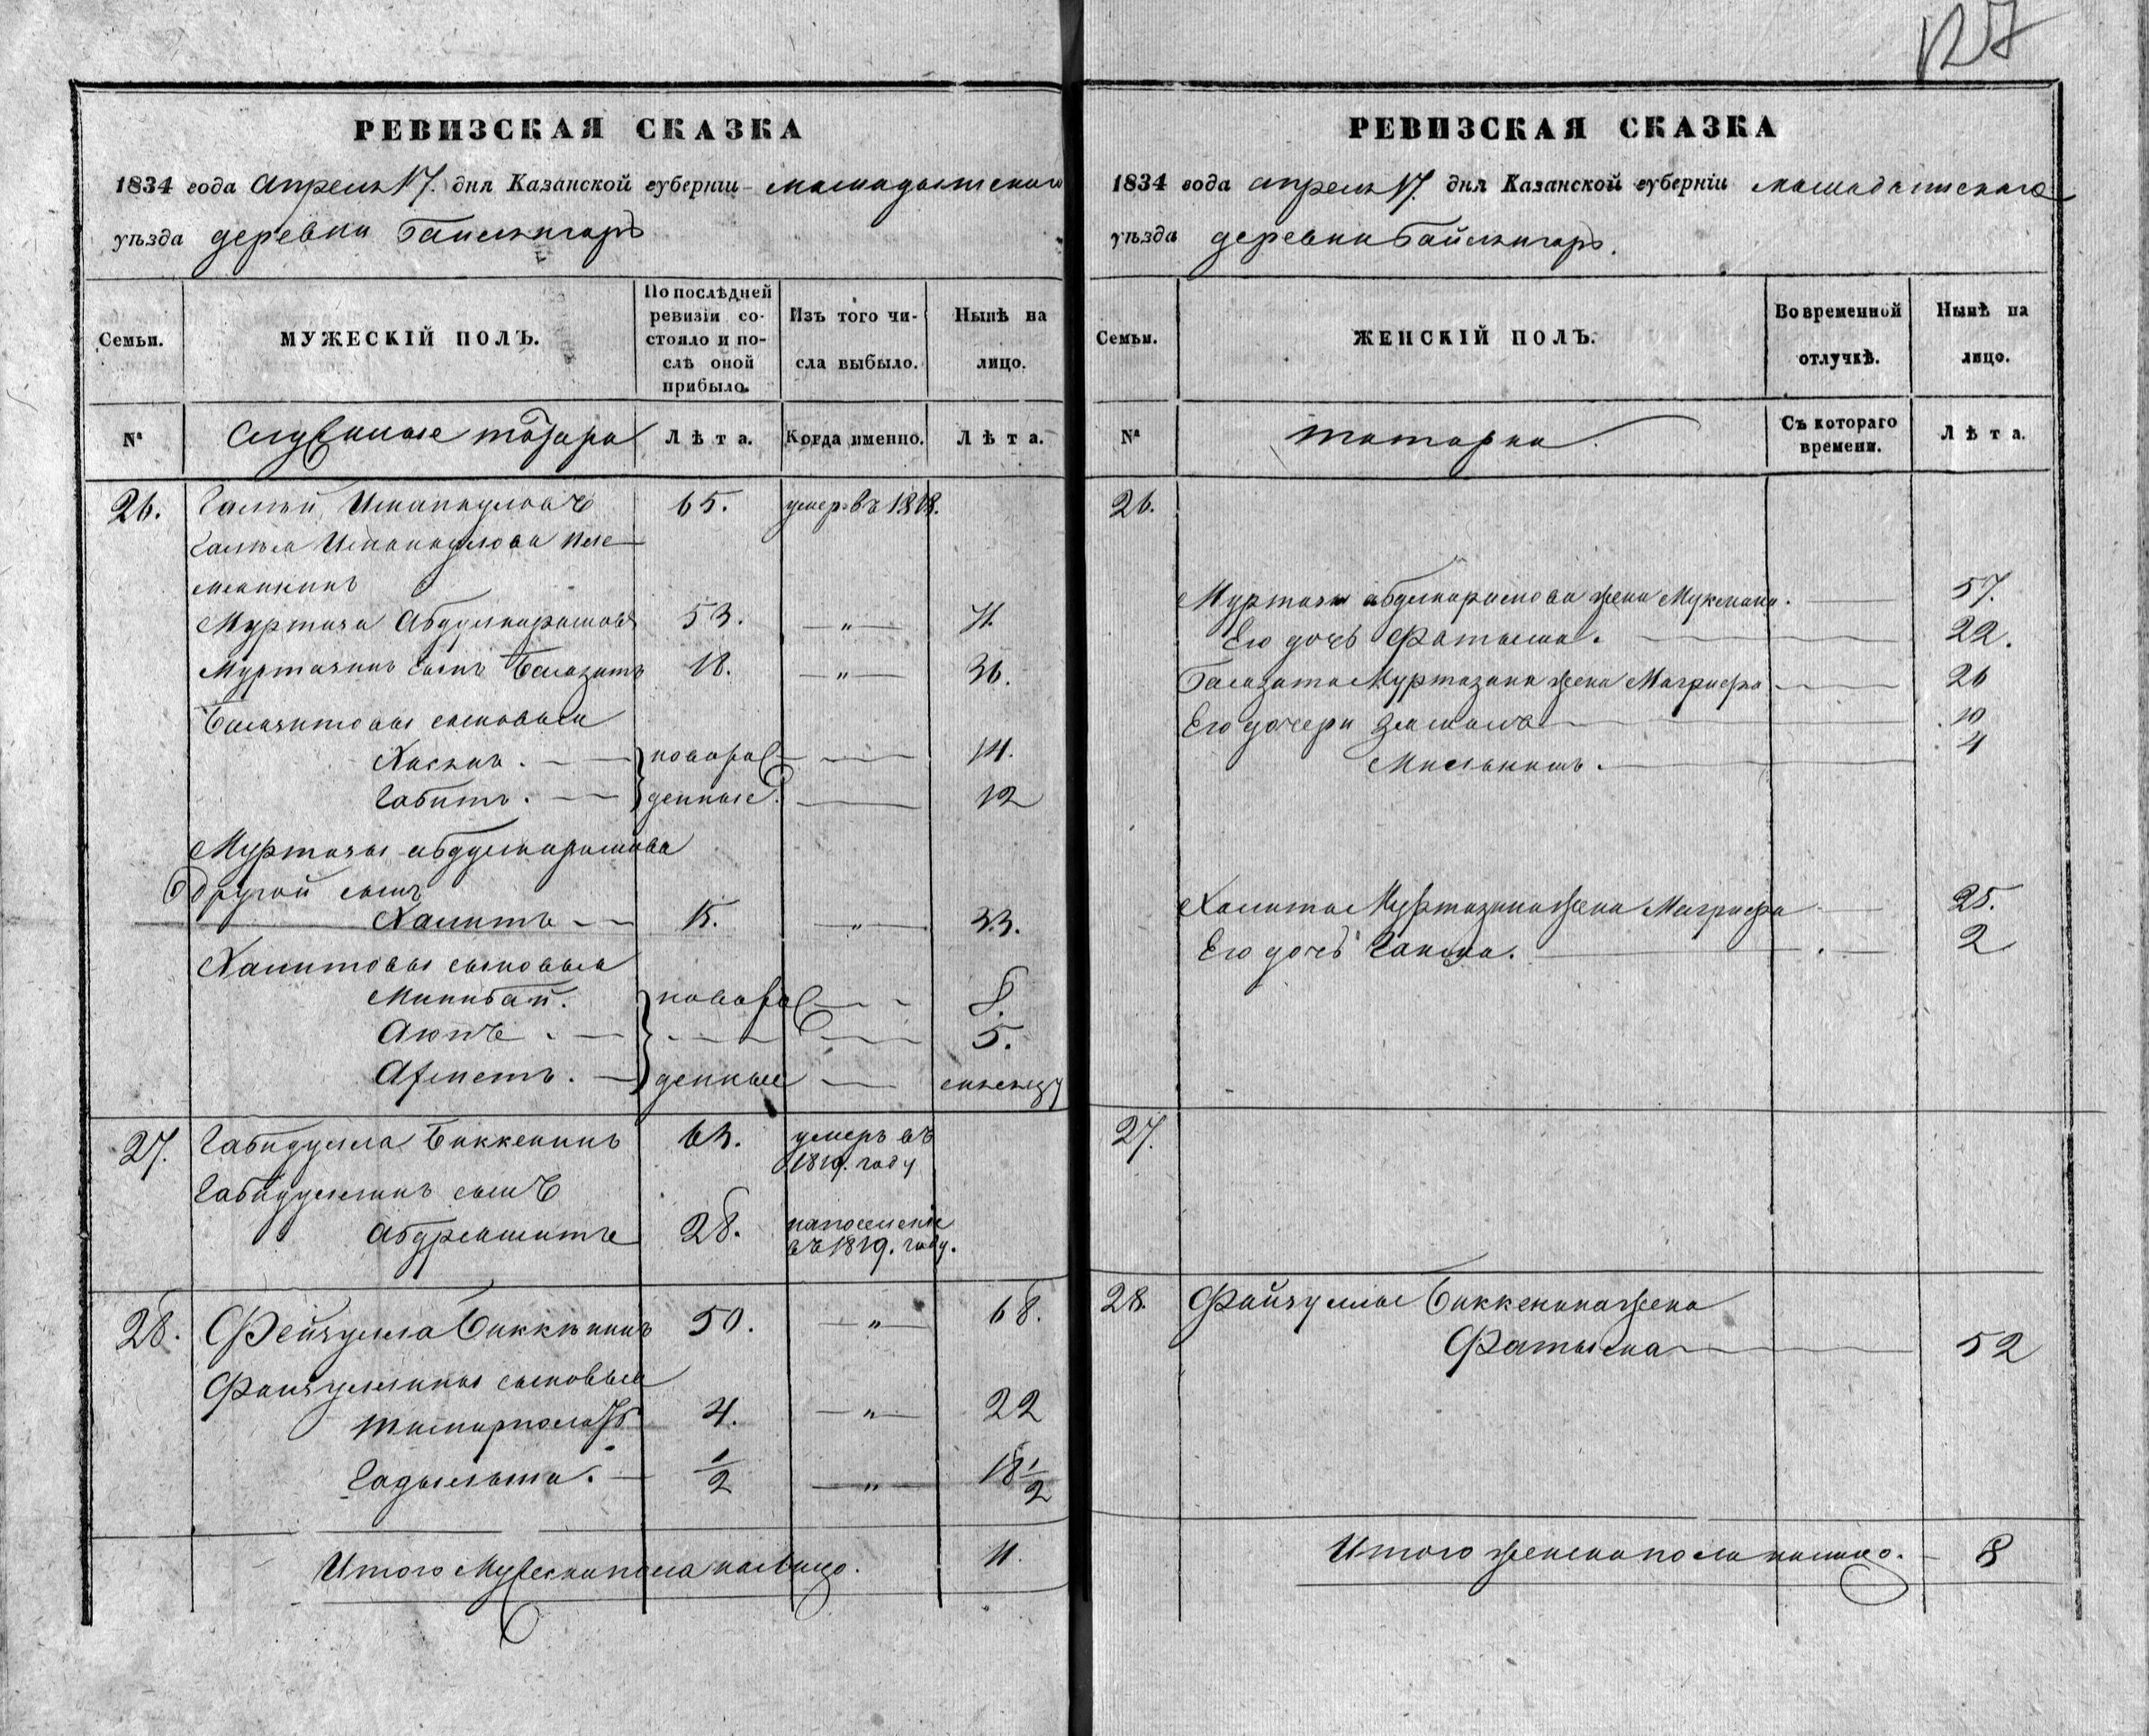 127
РЕВИЗСКАЯ СКАЗКА
1834 года апреля 17. дня Казанской губерніи мамадышскаго
уѣзда деревни
Семьи.
МУЖЕСКІЙ ПОЛЪ.
По послѣдней ревизіи состояло и послѣ оной прибыло.
Изъ того числа выбыло.
Нынѣ на лицо.
№
служилые татара
Лѣта.
Когда именно.
Лѣта.
26. Исманкуловъ 65. умеръ въ 1818.
Исманкулова пле
мянникъ
Муртаза Абдулкаримовъ 53. — " — 71.
Муртазинъ сынъ Балазитъ 18. — " — 36.
Балазитовы сыновья
новорож 14.
Габитъ. денные. 12
Муртазы абдулкаримова
другой сынъ
Халитъ 15. — " — 33.
Халитовы сыновья
Минибай. новорож 8.
Аюпъ 5.
Ахметъ. денные
27. Габидулла Биккенинъ 63. умеръ въ
1819. году
Габидуллинъ сынъ
Абдрешитъ 28. на поселеніе
въ 1819. году.
28. Фейзулла Биккининъ 50. — " — 68.
Файзуллины сыновья
4. — " — 22
1/2 — " — 18 1/2
Итого Мужеска пола на лицо. 11.
РЕВИЗСКАЯ СКАЗКА
1834 года апреля 17. дня Казанской губерніи мамадышскаго
уѣзда деревни
Семьи.
ЖЕНСКІЙ ПОЛЪ.
Во временной отлучкѣ.
Нынѣ на лицо.
№
татарки.
Съ котораго времени.
Лѣта.
26.
Муртазы абдулкаримова жена 57.
Его дочь Фатыма. 22.
Балазита Муртазина жена Магрифа 26
Его дочери 10
4
Халита Муртазина жена Магрифа 25.
Его дочь 2
27.
28. Файзуллы Биккенина жена
Фатыма 52
Итого женска пола на лицо. 8